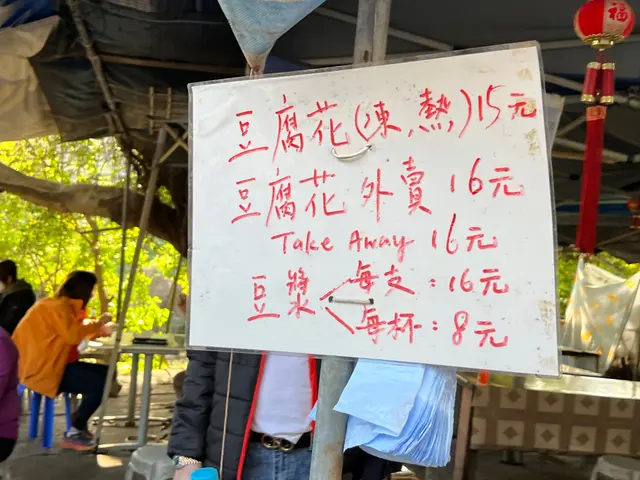 福
豆腐花(凍,熱)15元
豆腐花外賣 16元
Take Away 16元
豆漿 每支:16元
每杯:8元